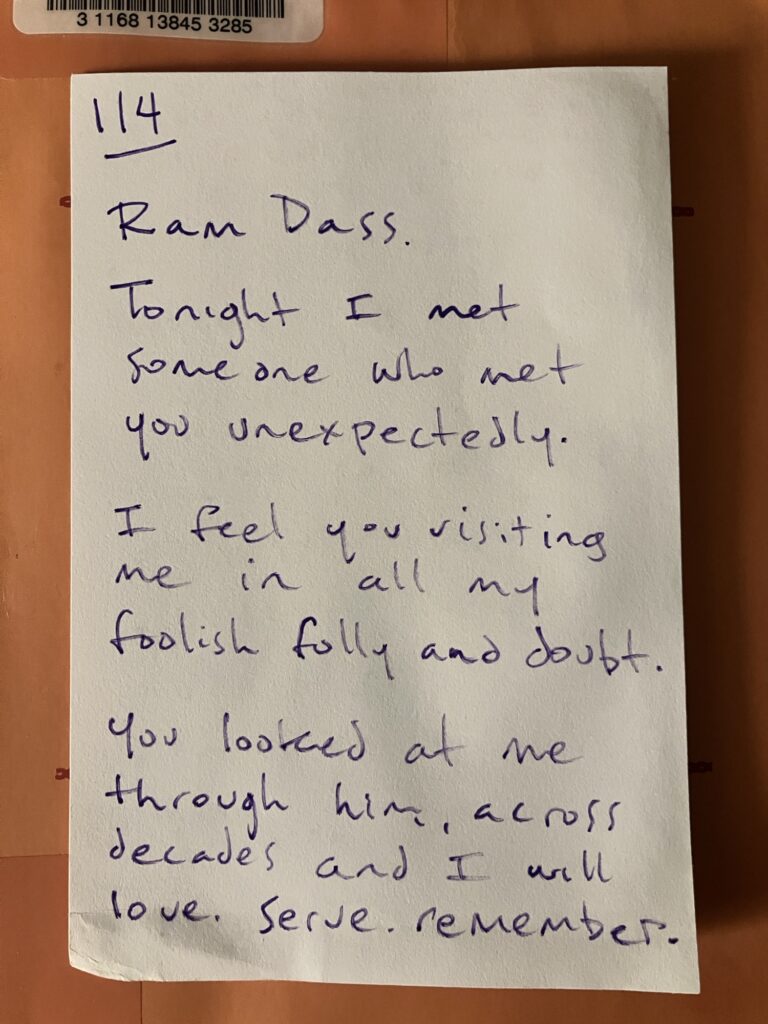 3 1168 13845 3285
114
Ram Dass.
Tonight I met
someone who met
you unexpectedly.
I feel you visiting
me in all my
foolish folly and doubt.
You looked at me
through him, across
decades and I will
love. serve. remember.